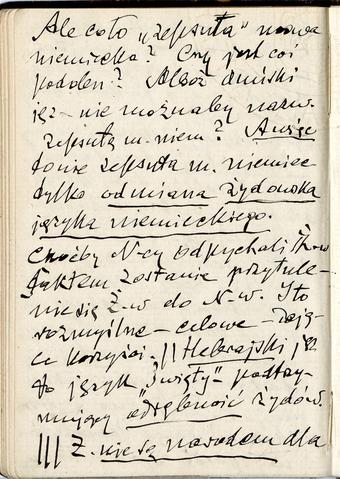 Ale co to „zepsuta" mowa
niemiecka? Czy jest coś
podobn? Alboż duński
jęz – nie możnaby nazw.
zepsutą m. niem? A więc
to nie zepsuta m. niemiec
tylko odmiana żydowska
języka niemieckiego.
Choćby N-cy odpychali Ż-ów
faktem zostanie przytule-
nie się Ż-w do N-w. I to
rozmyślne – celowe – 
ce korzyści. || Hebrajski jęz
to język „święty" podtrzy-
mujący odrębność żydów.
||| Ż. nie są narodem dla